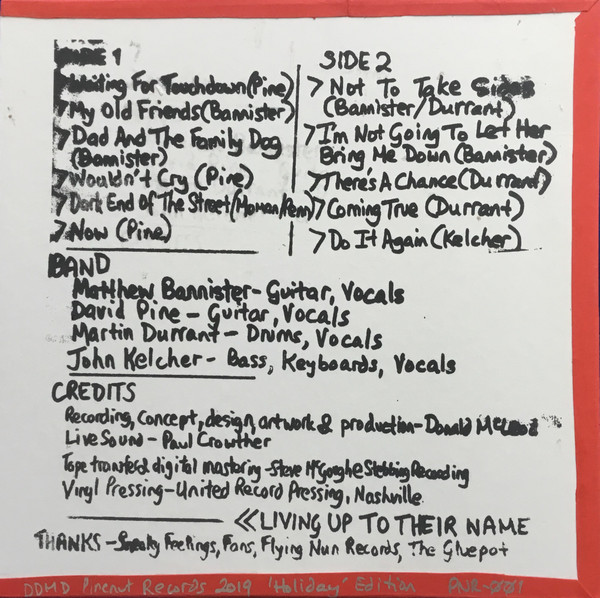 SIDE 1
>Waiting For Touchdown (Pine)
>My Old Friends (Bannister)
>Dad And The Family Dog
(Bannister)
>Wouldn't Cry (Pine)
>Dark End Of The Street (Moman/Penn)
>Now (Pine)
SIDE 2
>Not To Take Sides
(Bannister/Durrant)
>I'm Not Going To Let Her
Bring Me Down (Bannister)
>There's A Chance (Durrant)
>Coming True (Durrant)
>Do It Again (Kelcher)
BAND
Matthew Bannister- Guitar, Vocals
David Pine - Guitar, Vocals
Martin Durrant - Drums, Vocals
John Kelcher - Bass, Keyboards, Vocals
CREDITS
Recording, concept, design, artwork & production- Donald McLeod
Live Sound - Paul Crowther
Tape transfer & digital mastering - Steve McGough @ Stebbing Recording
Vinyl Pressing - United Record Pressing, Nashville.
<<LIVING UP TO THEIR NAME
THANKS - Sneaky Feelings, Fans, Flying Nun Records, The Gluepot
DDMD Pinenut Records 2019 'Holiday' Edition